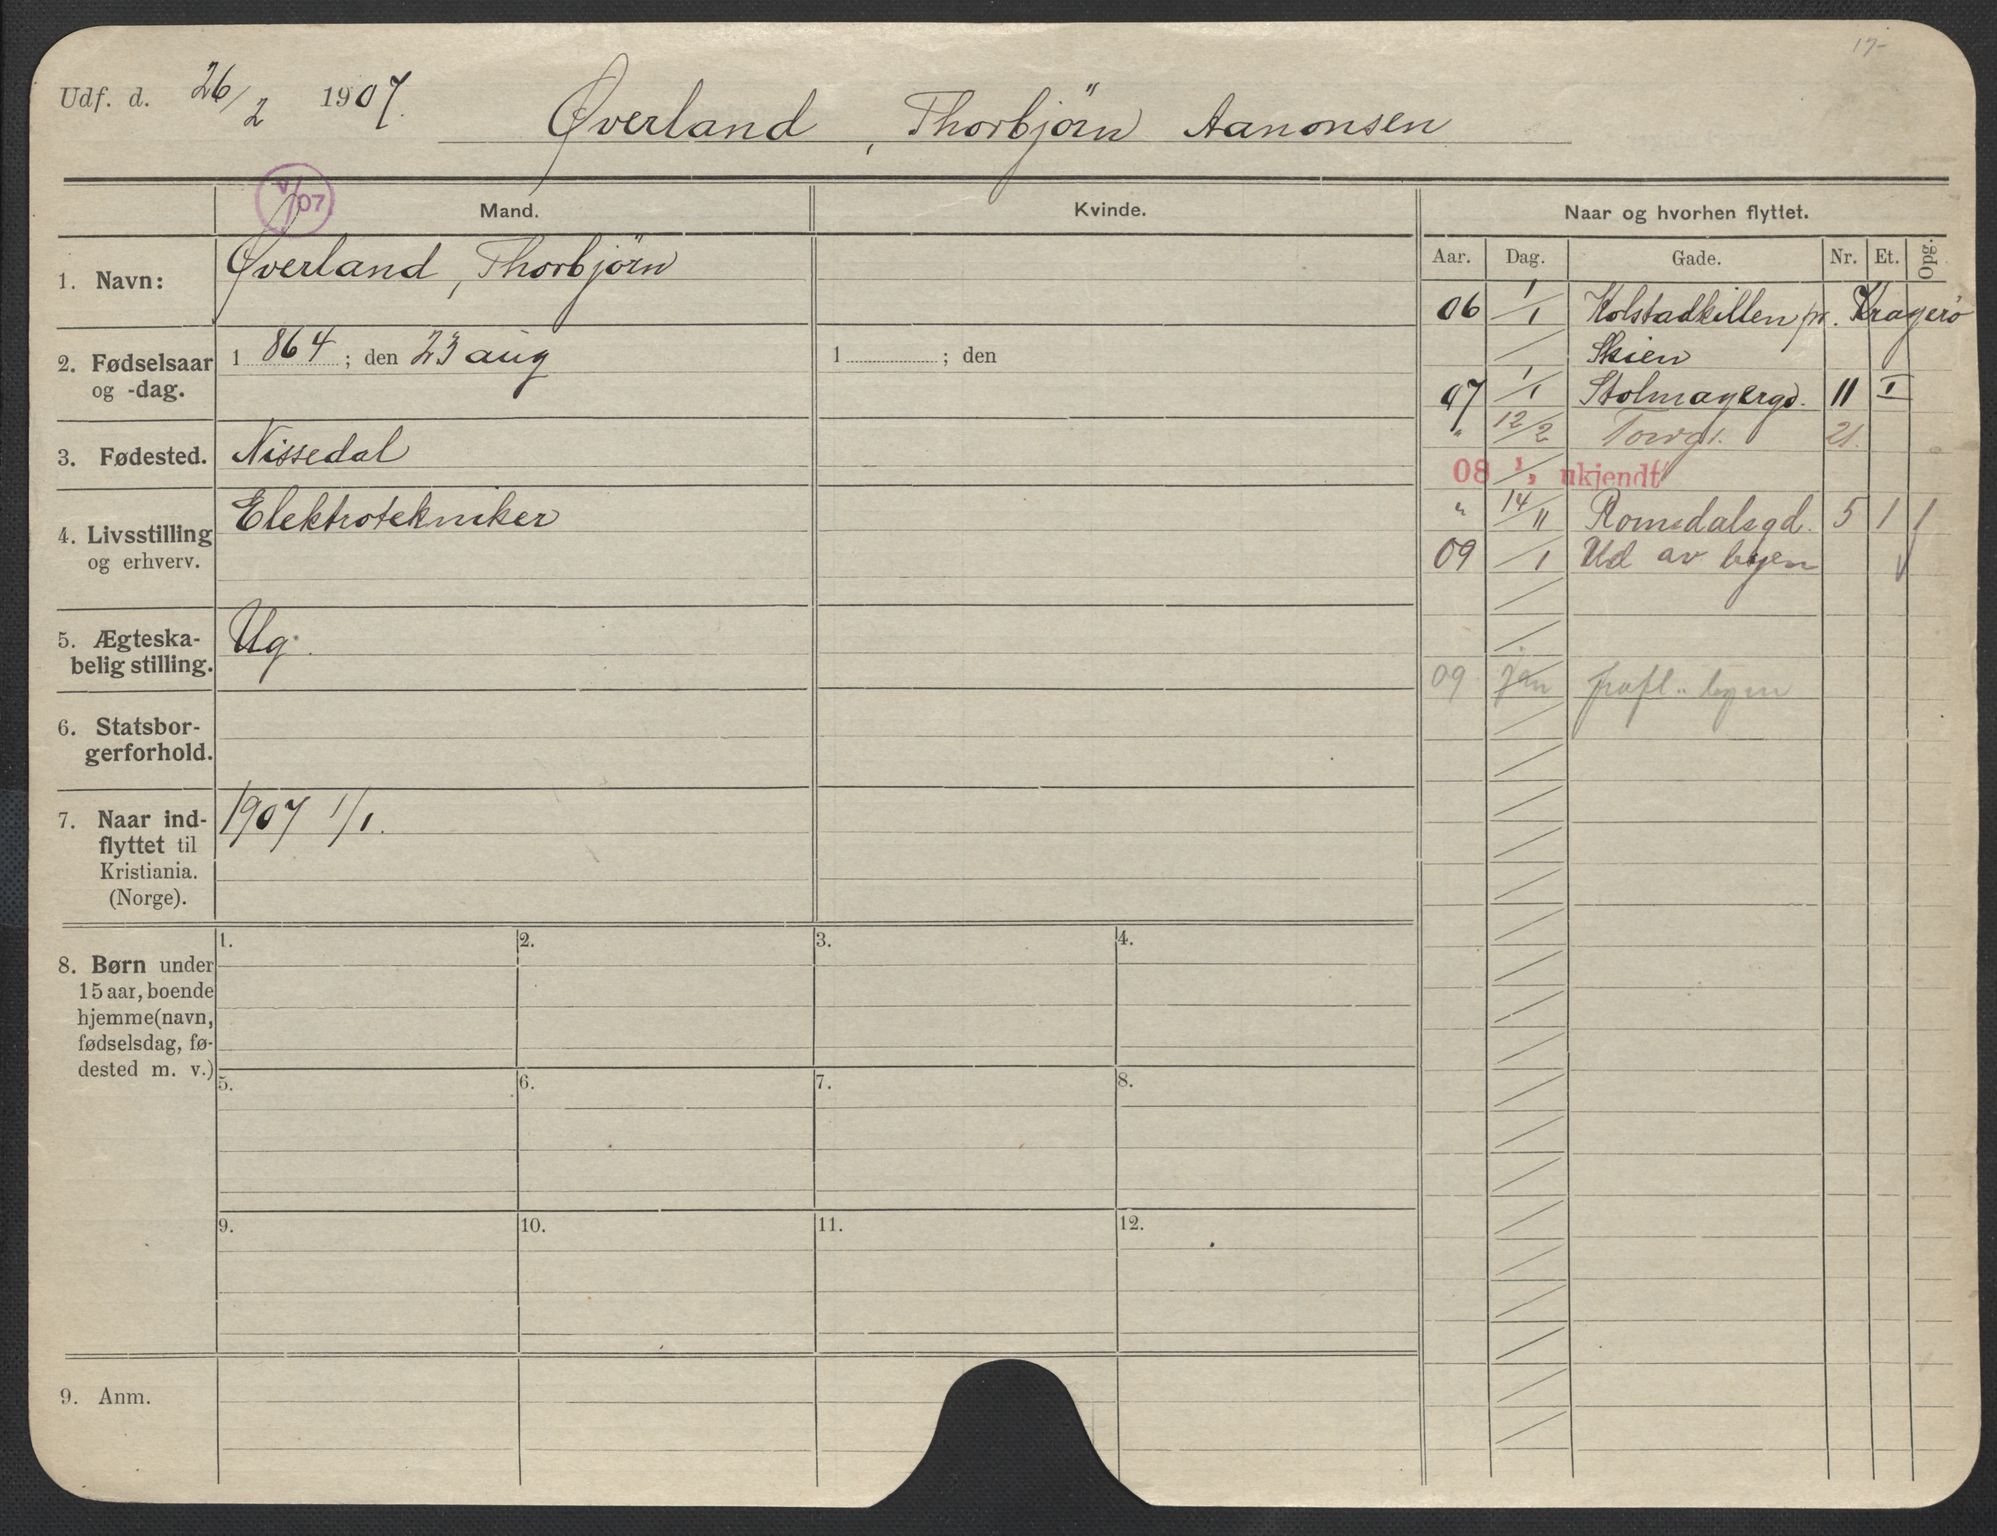 17-
Udf. d. 26/2 1907. Øverland, Thorbjörn Aanonsen
V/07
Mand.
Kvinde.
Naar og hvorhen flyttet.
Aar. Dag. Gade. Nr. Et. Opg.
1. Navn: Øverland, Thorbjörn
2. Fødselsaar og -dag. 1864; den 23 aug
1 ; den
3. Fødested. Nissedal
4. Livsstilling og erhverv. Elektrotekniker
5. Ægteska-
belig stilling. Ug.
6. Statsbor-
gerforhold.
7. Naar ind-
flyttet til
Kristiania.
(Norge).
1907 1/1.
06 1/1 Kolstadkillen pr. Kragerö
Skien
07 1/1 Stolmagergd. 11 I
" 12/2 Torvgt. 21.
08 1/1 ukjendt
" 14/11 Romsdalsgd. 5 1 1
09 /1 Ud av byen
09 jan byen
8. Børn under
15 aar, boende
hjemme (navn,
fødselsdag, fø-
dested m. v.)
1. 2. 3. 4.
5. 6. 7. 8.
9. 10. 11. 12.
9. Anm.